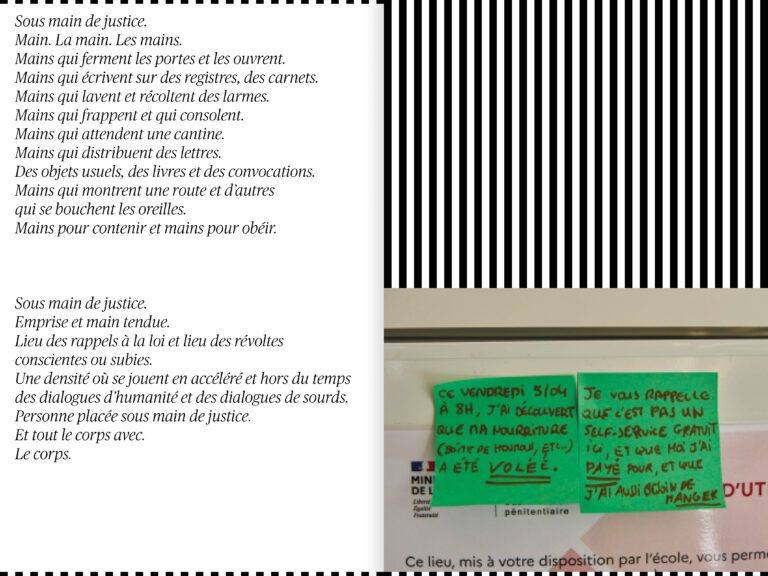 Sous main de justice.
Main. La main. Les mains.
Mains qui ferment les portes et les ouvrent.
Mains qui écrivent sur des registres, des carnets.
Mains qui lavent et récoltent des larmes.
Mains qui frappent et qui consolent.
Mains qui attendent une cantine.
Mains qui distribuent des lettres.
Des objets usuels, des livres et des convocations.
Mains qui montrent une route et d'autres
qui se bouchent les oreilles.
Mains pour contenir et mains pour obéir.
Sous main de justice.
Emprise et main tendue.
Lieu des rappels à la loi et lieu des révoltes
conscientes ou subies.
Une densité où se jouent en accéléré et hors du temps
des dialogues d'humanité et des dialogues de sourds.
Personne placée sous main de justice.
Et tout le corps avec.
Le corps.
CE VENDREDI 5/04
À 8H, J'AI DÉCOUVERT
QUE MA NOURRITURE
(BOÎTE DE HOUMOUS, ETC..)
A ÉTÉ VOLÉE.
JE VOUS RAPPELLE
QUE C'EST PAS UN
SELF-SERVICE GRATUIT
ICI, ET QUE MOI J'AI
PAYÉ POUR, ET QUE
J'AI AUSSI BESOIN DE
MANGER
MINI
DE L
Liberté
Égalité
Fraternité
pénitentiaire
D'UT
Ce lieu, mis à votre disposition par l'école, vous perme